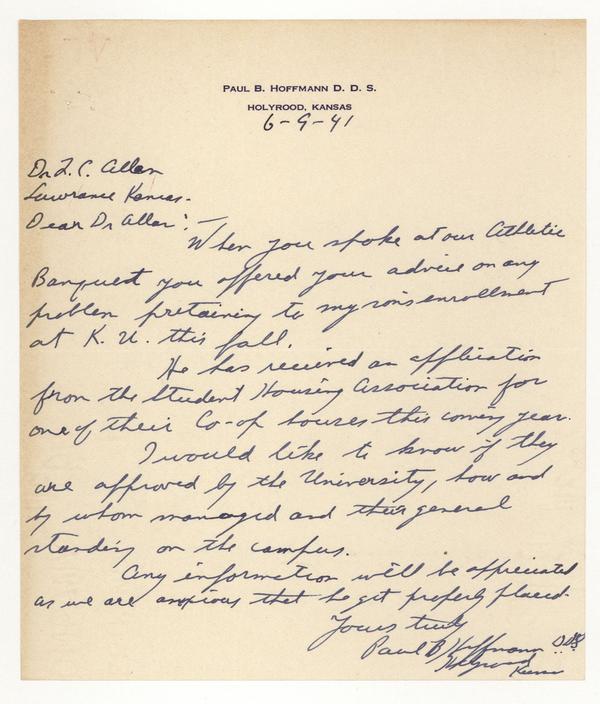 PAUL B. HOFFMANN D. D. S.
HOLYROOD, KANSAS
6-9-41
Dr. F. C. Allen
Lawrance Kansas.
Dear Dr Allen: —
When you spoke at our Athletic
Banquest you offered your advice on any
problem pretaining to my sons enrollment
at K. U. this fall.
He has recieved an application
from the Student Housing Association for
one of their Co-op houses this coming year.
I would like to know if they
are approved by the University, how and
by whom managed and their general
standing on the campus.
Any information will be appreciated
as we are anxious that he get properly placed.
Yours truly
Paul B Hoffmann D.D.S.
Holyrood
Kans